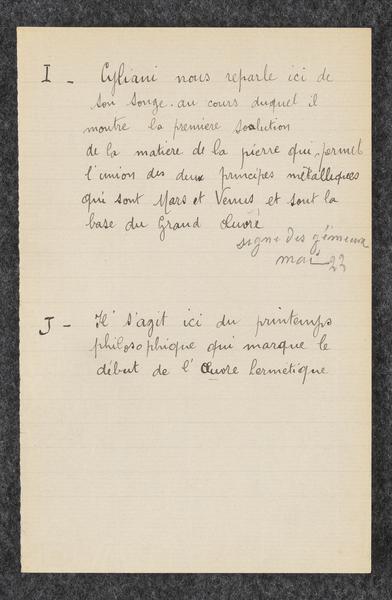 I - Cyliani nous reparle ici de
son songe. au cours duquel il
montre la première solution
de la matiere de la pierre qui permet
l'union des deux principes métalliques
qui sont Mars et Venus et sont la
base du Grand Œuvre
signe des gémeaux
mai 23
J - Il s'agit ici du printemps
philosophique qui marque le
début de l'Œuvre hermétique